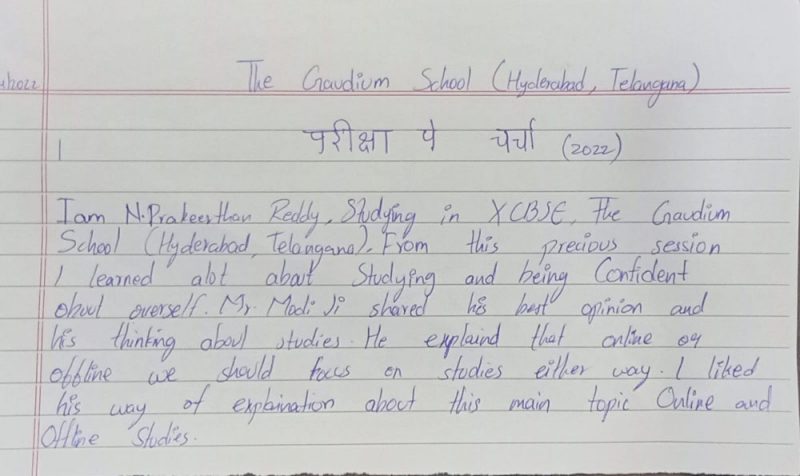 The Gaudium School (Hyderabad, Telangana)
परीक्षा पे चर्चा (2022)
I am N.Prakeerthan Reddy, Studying in X CBSE, The Gaudium
School (Hyderabad, Telangana). From this precious session
I learned alot about Studying and being Confident
about overself. Mr. Modi Ji shared his best opinion and
his thinking about studies. He explaind that online or
offline we should focus on studies either way. I liked
his way of explaination about this main topic Online and
Offline Studies.